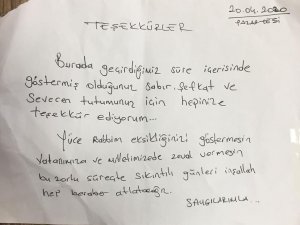 20.04.2020
PAZARTESİ
TEŞEKKÜRLER
Burada geçirdiğimiz süre içerisinde
göstermiş olduğunuz sabır, şefkat ve
Sevecen tutumunuz için hepinize
teşekkür ediyorum...
Yüce Rabbim eksikliğinizi göstermesin
Vatanımıza ve milletimizede zeval vermesin
bu zorlu süreçte sıkıntılı günleri inşallah
hep beraber atlatacağız.
SAYGILARIMLA...